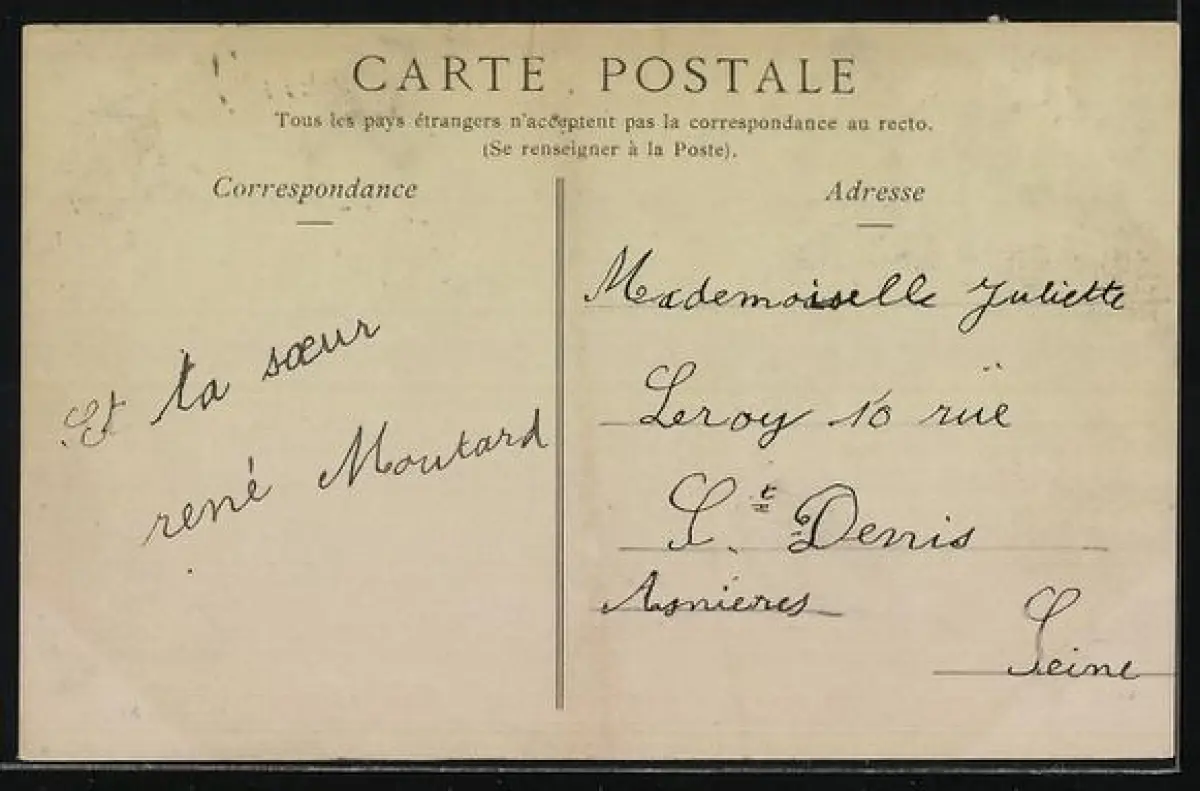 CARTE POSTALE
Tous les pays étrangers n'acceptent pas la correspondance au recto.
(Se renseigner à la Poste).
Correspondance
Et ta sœur
rené Moutard
Adresse
Mademoiselle Juliette
Leroy 10 rüe
St Denis
Asnières
Seine